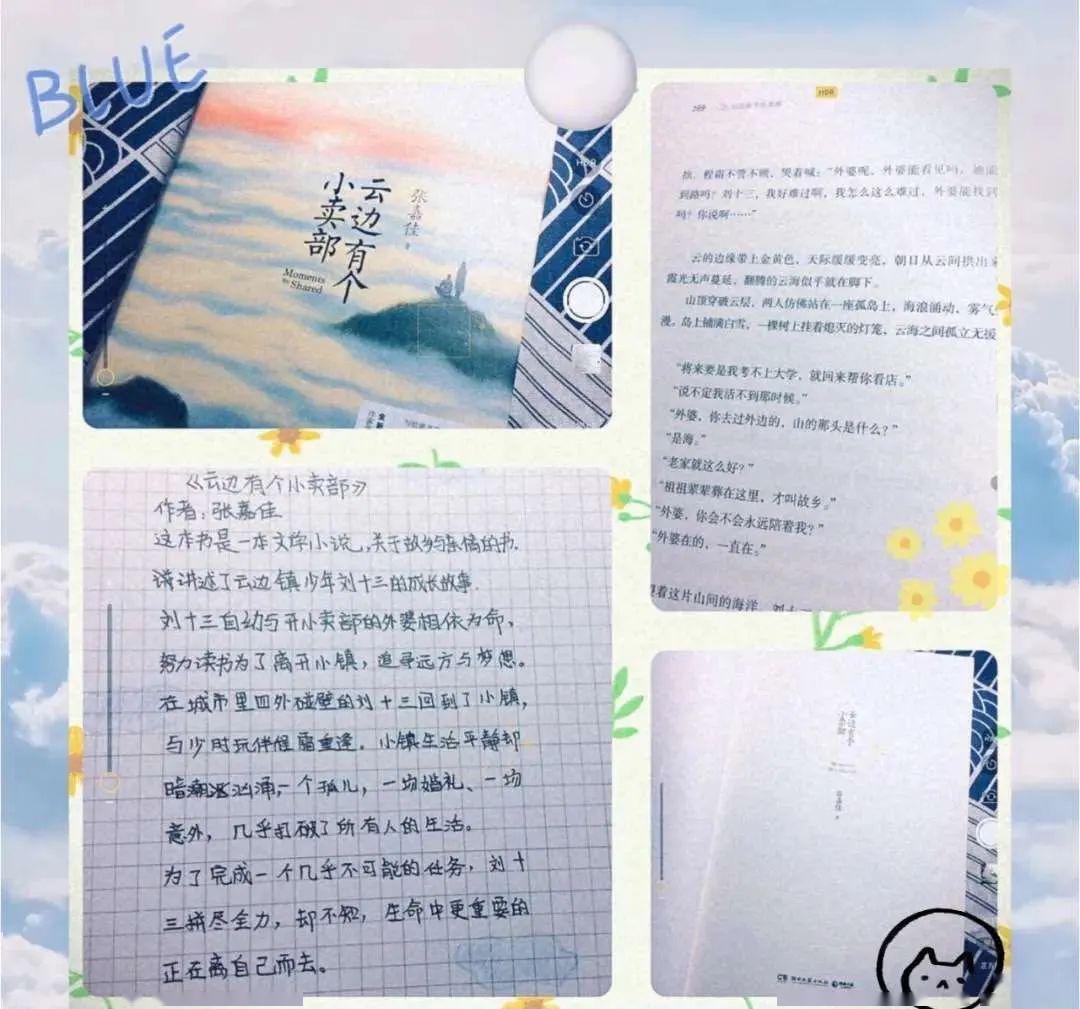 BLUE
云边有个
小卖部
张嘉佳
著
Moments
We
Shared
HDR
《云边有个小卖部》
作者:张嘉佳
这本书是一本文学小说,关于故乡与亲情的书.
讲讲述了云边镇少年刘十三的成长故事.
刘十三自幼与开小卖部的外婆相依为命,
努力读书为了离开小镇,追寻远方与梦想。
在城市里四外碰壁的刘十三回到了小镇,
与少时玩伴程霜重逢。小镇生活平静却
暗潮汹涌,一个孤儿,一场婚礼、一场
意外,几乎打破了所有人的生活。
为了完成一个几乎不可能的任务,刘十
三拼尽全力,却不知,生命中更重要的
正在离自己而去。
HDR
269
执,程霜不管不顾,哭着喊:“外婆呢,外婆能看见吗,她能
到路吗?刘十三,我好难过啊,我怎么这么难过,外婆能找到
吗?你说啊……”
云的边缘带上金黄色,天际缓缓变亮,朝日从云间拱出来
霞光无声蔓延,翻腾的云海似乎就在脚下。
山顶穿破云层,两人仿佛站在一座孤岛上,海浪涌动,雾气
漫。岛上铺满白雪,一棵树上挂着熄灭的灯笼,云海之间孤立无援
“将来要是我考不上大学,就回来帮你看店。”
“说不定我活不到那时候。”
“外婆,你去过外边的,山的那头是什么?”
“是海。”
“老家就这么好?”
“祖祖辈辈葬在这里,才叫故乡。”
“外婆,你会不会永远陪着我?”
“外婆在的,一直在。”
着这片山间的海洋,刘十
云边有个
小卖部
张嘉佳
著
湖南文艺出版社